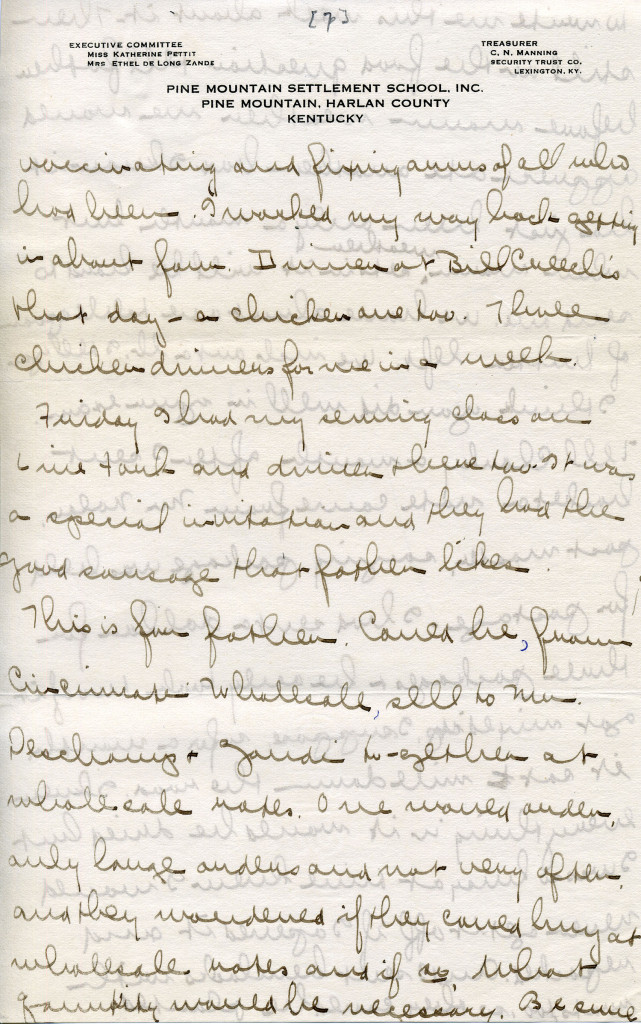 [7]
EXECUTIVE COMMITTEE
MISS KATHERINE PETTIT
MRS ETHEL DE LONG ZANDE
TREASURER
C. N. MANNING
SECURITY TRUST CO.
LEXINGTON, KY.
PINE MOUNTAIN SETTLEMENT SCHOOL, INC.
PINE MOUNTAIN, HARLAN COUNTY
KENTUCKY
vaccinating and fixing arms of all who
had been. I worked my way back getting
in about four. Dinner at Bill Creech's
that day - a chicken one too. Three
chicken dinners for me in a week.
Friday I had my sewing class on
Line Fork and dinner there too. It was
a special invitation and they had the
good sausage that father likes.
This is for father. Could he, from
Cincinnati Wholesale, sell to Mr.
Deschamp + Zandi to-gether at
wholesale rates. One would order,
only large orders and not very often.
and they wondered if they could buy at
wholesale rates and if so what
quantity would be necessary. Be sure